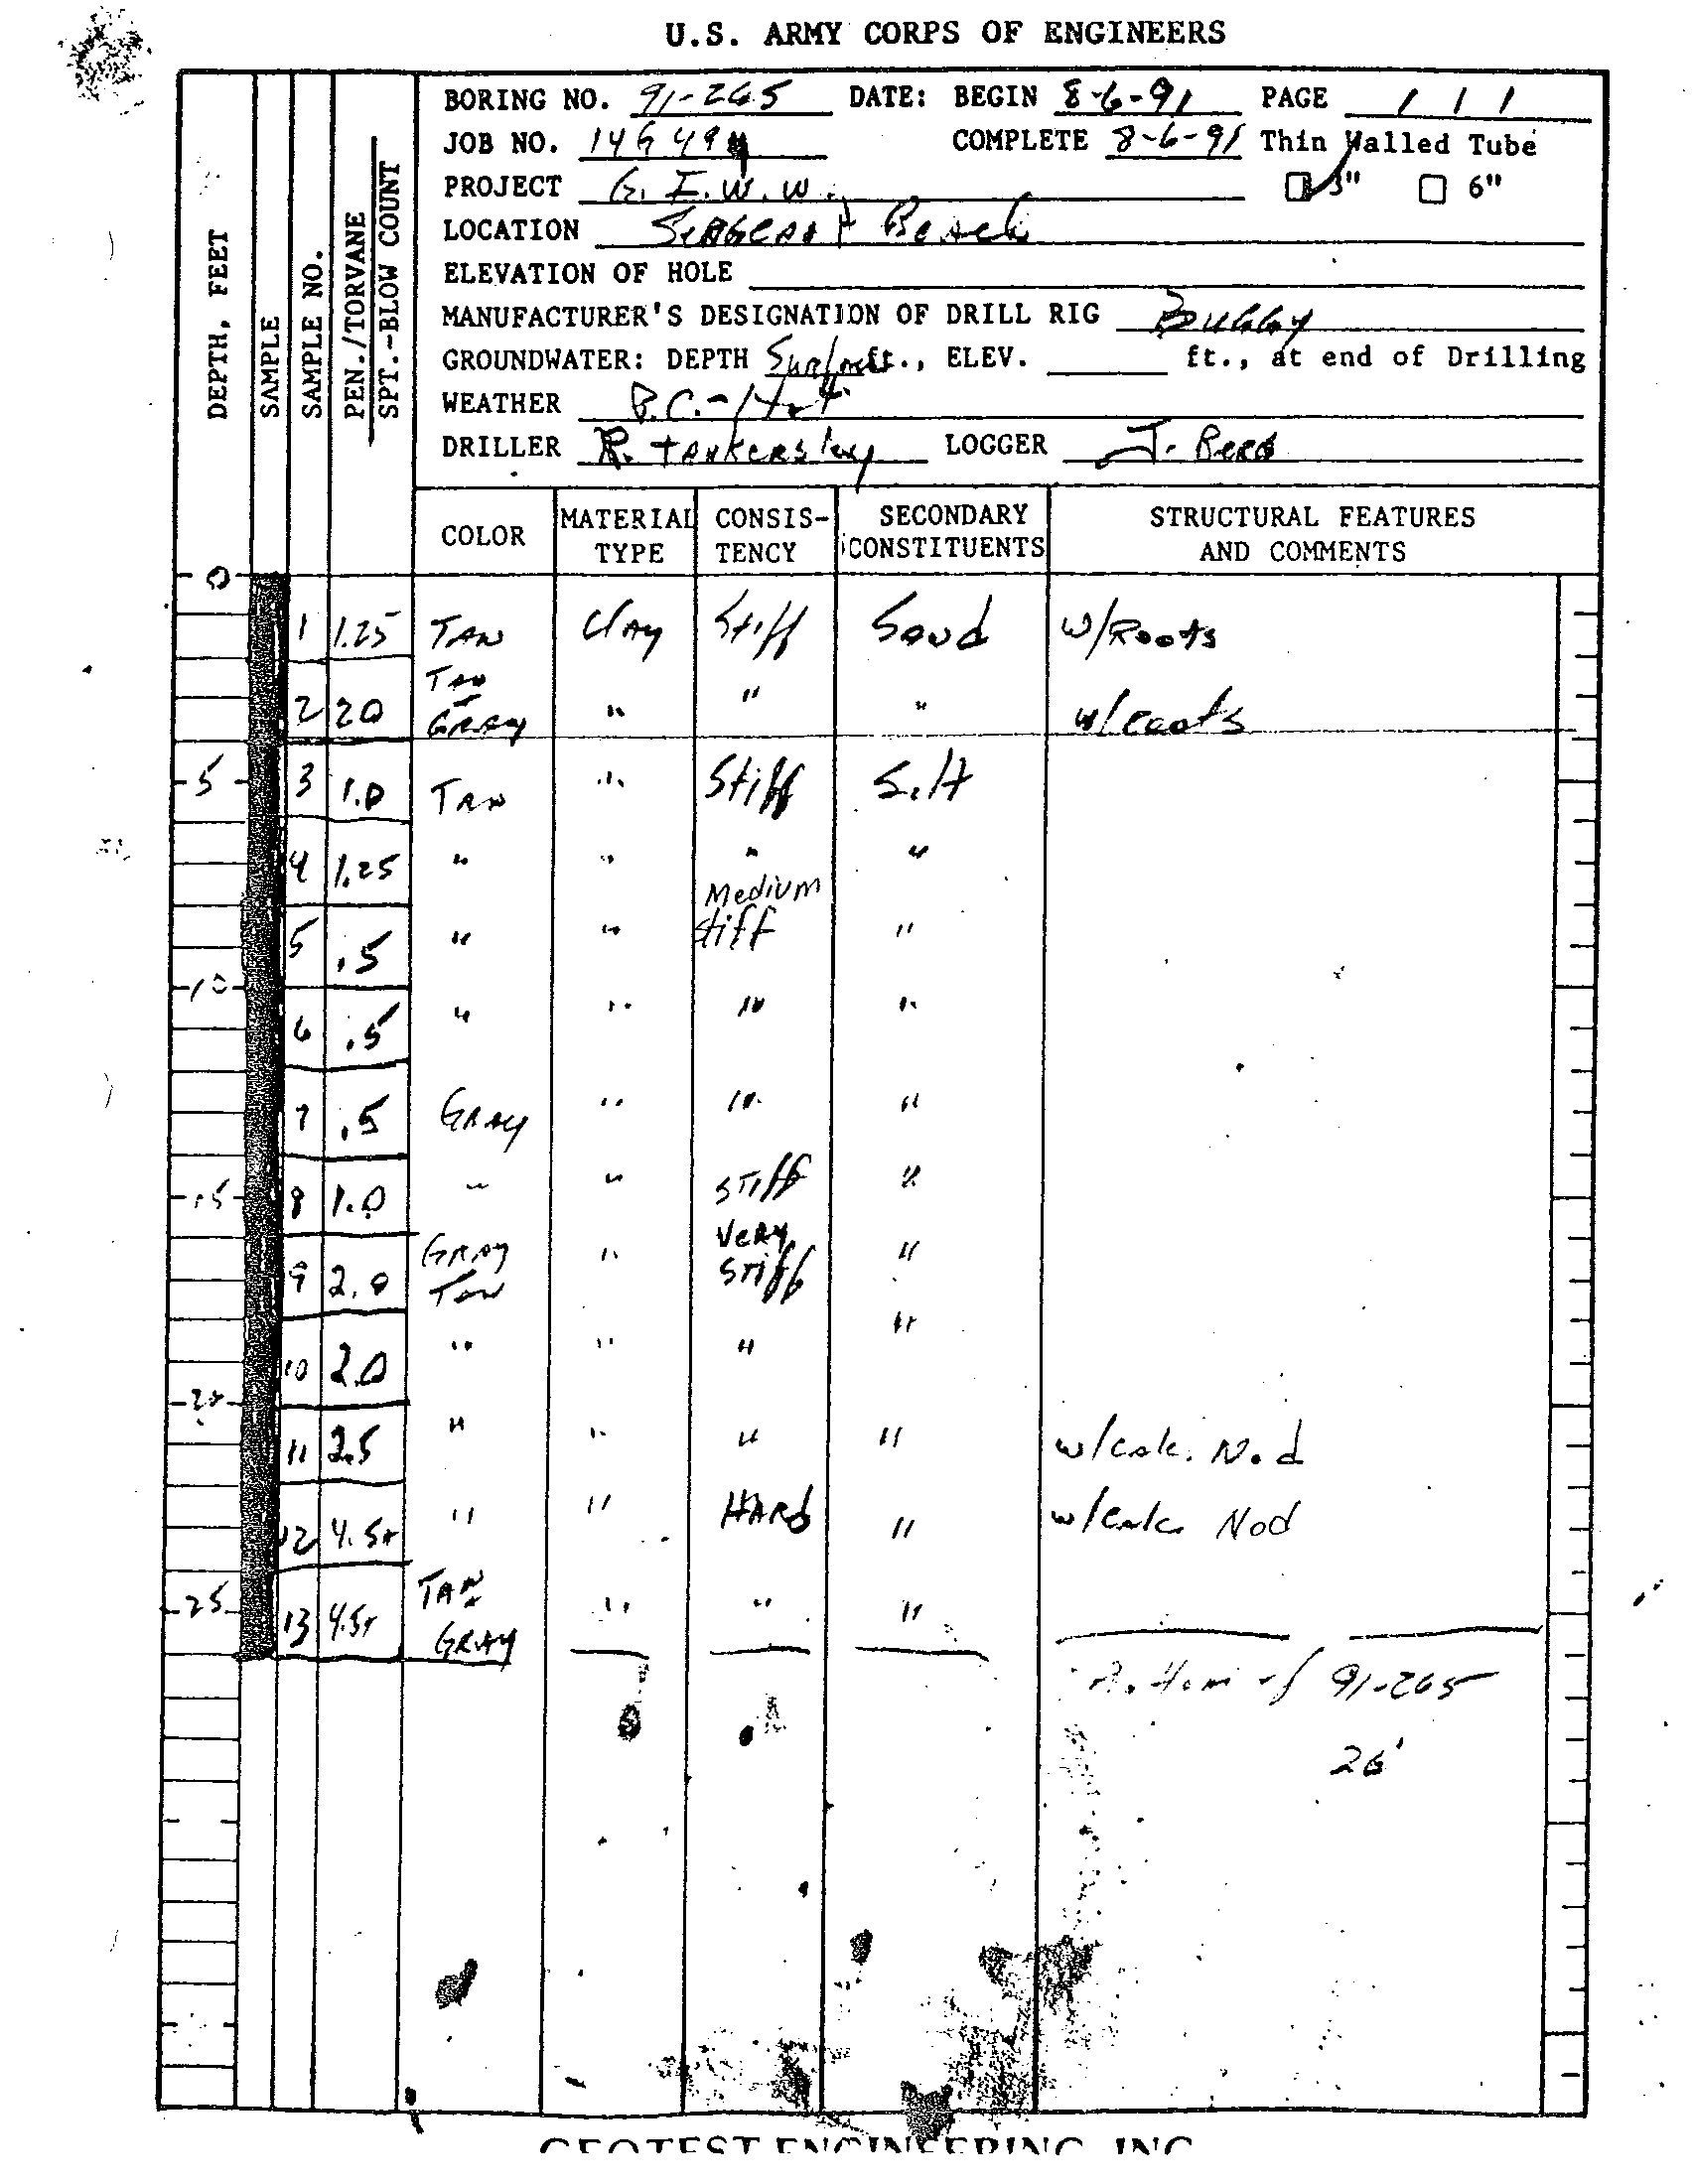 U.S. ARMY CORPS OF ENGINEERS
BORING NO. 91-265 DATE: BEGIN 8-6-91 PAGE 1 / 1
JOB NO. COMPLETE 8-6-91 Thin Walled Tube
PROJECT G. I. W. W. 3" 6"
LOCATION Beach
ELEVATION OF HOLE
MANUFACTURER'S DESIGNATION OF DRILL RIG Buggy
GROUNDWATER: DEPTH Surface ft., ELEV. ft., at end of Drilling
WEATHER P.C.-Hot
DRILLER R. TANKERSley LOGGER J. Reed
DEPTH, FEET
SAMPLE
SAMPLE NO.
PEN./TORVANE
SPT.-BLOW COUNT
COLOR MATERIAL TYPE CONSIS-TENCY SECONDARY CONSTITUENTS STRUCTURAL FEATURES AND COMMENTS
0
1 1.25 TAN Clay Stiff Sand w/Roots
2 2.0 TAN + GRAY " " " w/roots
5 3 1.0 TAN " Stiff Silt
4 1.25 " " " "
5 .5 " " Medium Stiff "
10
6 .5 " " " "
7 .5 GRAY " " "
15 8 1.0 " " STIFF "
9 2.0 GRAY TAN " VERY STIFF "
10 2.0 " " " "
20
11 2.5 " " " " w/calc. Nod
12 4.5+ " " HARD " w/calc Nod
25 13 4.5+ TAN + GRAY " " "
Bottom of 91-265
26'
GEOTEST ENGINEERING, INC.